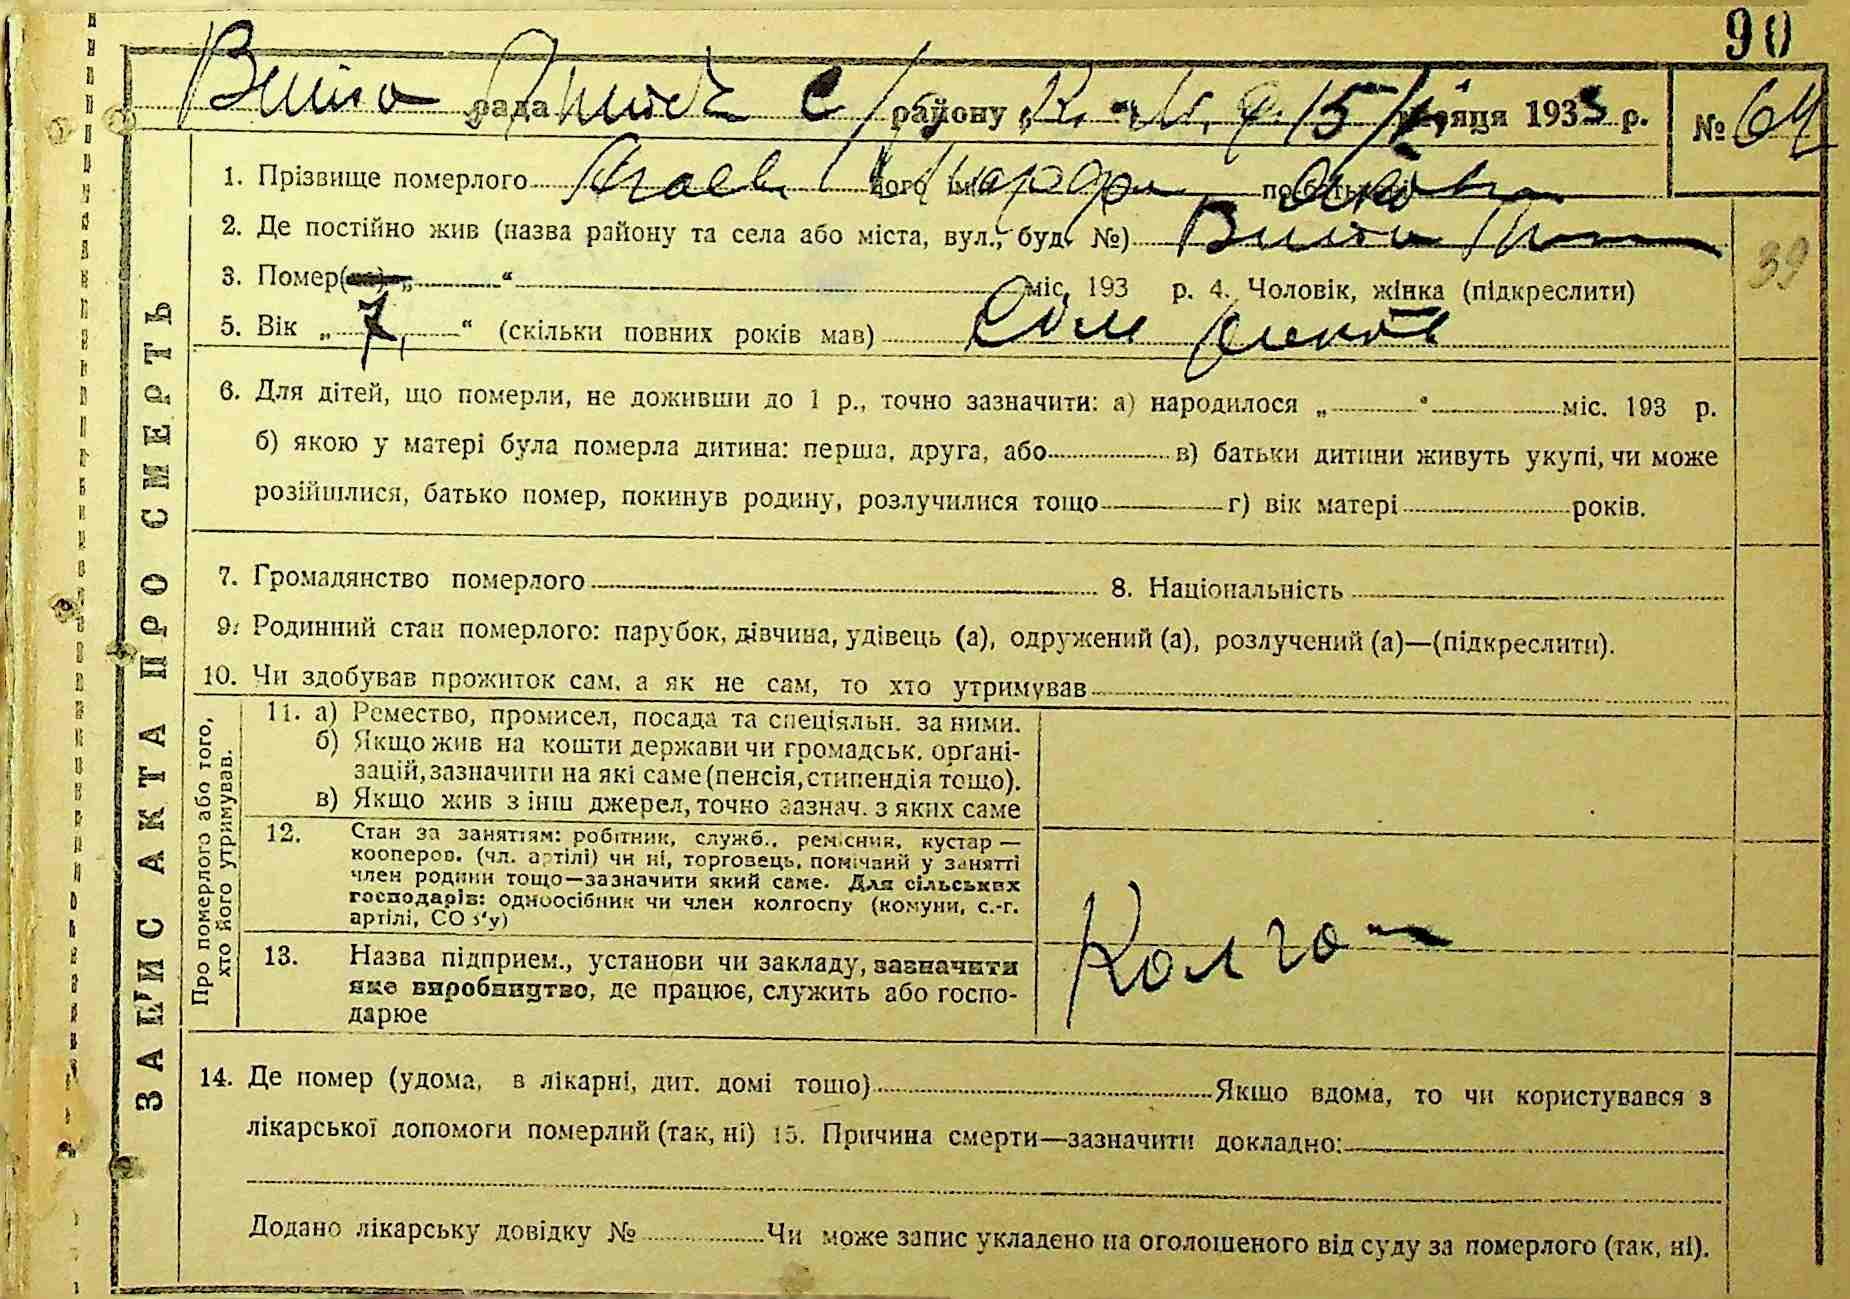 90
рада району 15 місяця 1933 р. № 64
1. Прізвище померлого його ім'я по батькові
2. Де постійно жив (назва району та села або міста, вул., буд. №)
39
3. Помер „ “ міс. 193 р. 4. Чоловік, жінка (підкреслити)
5. Вік „ 7 “ (скільки повних років мав) Сім
6. Для дітей, що померли, не доживши до 1 р., точно зазначити: а) народилося „ “ міс. 193 р.
б) якою у матері була померла дитина: перша, друга, або в) батьки дитини живуть укупі, чи може
розійшлися, батько помер, покинув родину, розлучилися тощо г) вік матері років.
7. Громадянство померлого 8. Національність
9. Родинний стан померлого: парубок, дівчина, удівець (а), одружений (а), розлучений (а)—(підкреслити).
10. Чи здобував прожиток сам, а як не сам, то хто утримував
Про померлого або того,
хто його утримував.
11. а) Ремество, промисел, посада та спеціяльн. за ними.
б) Якщо жив на кошти держави чи громадськ. орґані-
зацій, зазначити на які саме (пенсія, стипендія тощо).
в) Якщо жив з інш джерел, точно зазнач. з яких саме
12. Стан за заняттям: робітник, служб., ремісник, кустар —
кооперов. (чл. артілі) чи ні, торговець, помічний у занятті
член родини тощо—зазначити який саме. Для сільських
господарів: одноосібник чи член колгоспу (комуни, с.-г.
артілі, СОЗ'у)
13. Назва підприєм., установи чи закладу, зазначити
яке виробництво, де працює, служить або госпо-
дарює
Колго
14. Де помер (удома, в лікарні, дит. домі тощо) Якщо вдома, то чи користувався з
лікарської допомоги померлий (так, ні) 15. Причина смерти—зазначити докладно:
Додано лікарську довідку № Чи може запис укладено на оголошеного від суду за померлого (так, ні).
ЗАПИС АКТА ПРО СМЕРТЬ